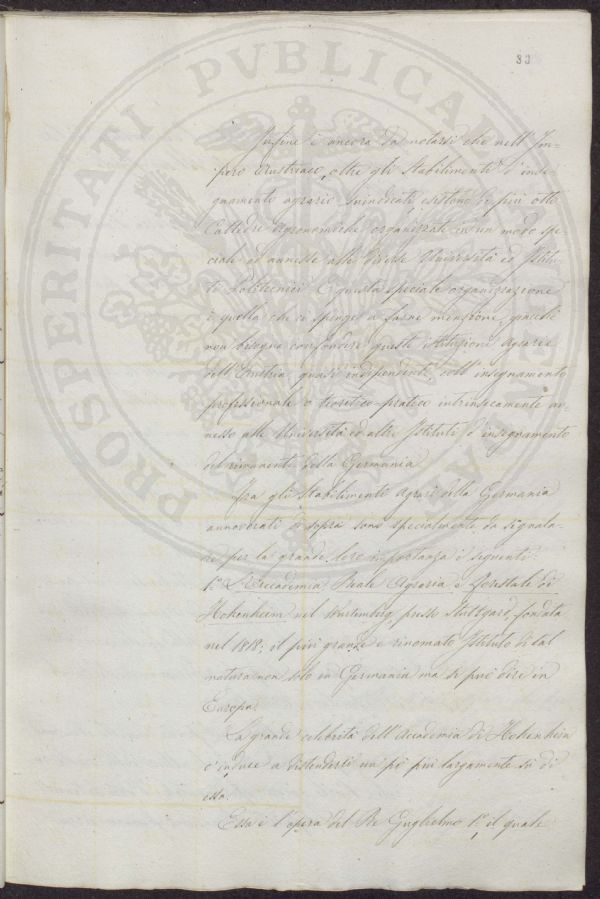 33
Infine è ancora da notarsi che nell'Im-
pero Austriaco, oltre gli Stabilimenti d'inse-
gnamento agrario suindicati esistono di più otto
Cattedre Agronomiche organizzate in un modo spe-
ciale ed annesse alle diverse Università ed Istitu-
ti Politecnici. È questa speciale organizzazione
è quella che ci spinge a farne menzione, giacchè
non bisogna confondere queste istituzioni Agrarie
dell'Austria quasi indipendenti, coll'insegnamento
professionale o teoretico-pratico intrinsecamente an-
nesso alle Università ed altri Istituti d'insegnamento
del rimanente della Germania.
Fra gli Stabilimenti Agrari della Germania
annoverati di sopra sono specialmente da segnala-
re per la grande loro importanza i seguenti:
1° L'Accademia Reale Agraria e Forestale di
Hohenheim nel Wurtemberg presso Stuttgard, fondata
nel 1818; il più grande e rinomato Istituto di tal
natura non solo in Germania ma si può dire in
Europa.
La grande celebrità dell'Accademia di Hohenheim
c'induce a distenderci un pò più largamente su di
essa.
Essa è l'opera del Re Guglielmo 1° il quale
PROSPERITATI PVBLICAE